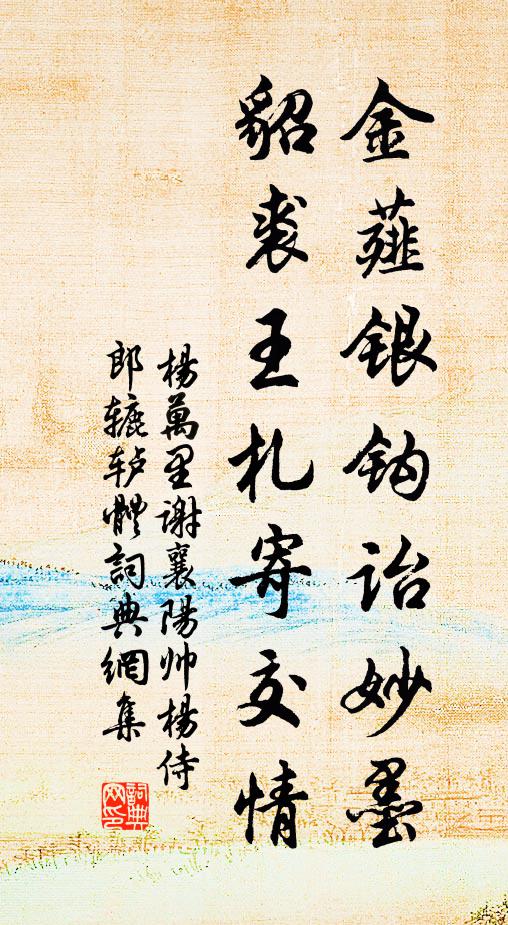 金薤银钩诒妙墨
貂裘王札寄交情
楊萬里谢襄陽帅楊侍
郎辘轳體詞典網集
詞典网印